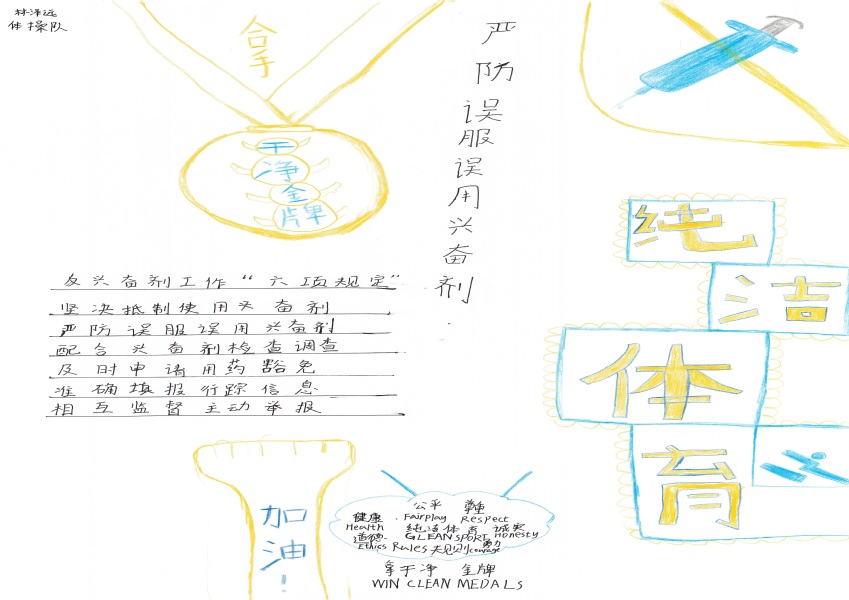 林泽远
体操队
拿
干
净
金
牌
严
防
误
服
误
用
兴
奋
剂
反兴奋剂工作“六项规定”
坚决抵制使用兴奋剂
严防误服误用兴奋剂
配合兴奋剂检查调查
及时申请用药豁免
准确填报行踪信息
相互监督主动举报
纯
洁
体
育
加
油
!
公平 尊重
健康 Fairplay Respect
Health 纯洁体育 诚实
道德 CLEAN SPORT Honesty
Ethics Rules 规则 勇力
courage
拿干净 金牌
WIN CLEAN MEDALS